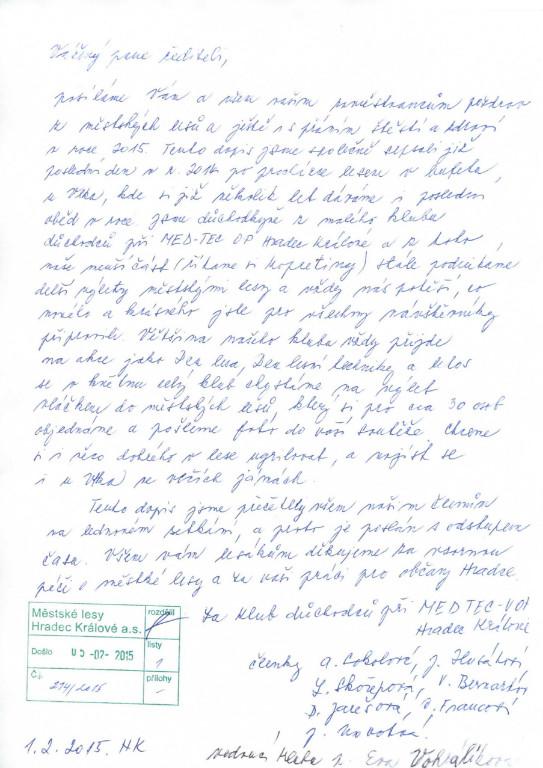 Vážený pane řediteli,
posíláme Vám a všem vašim zaměstnancům pozdrav
z městských lesů a ještě i s přáním štěstí a zdraví
v roce 2015. Tento dopis jsme společně sepsali již
poslední den v r. 2014 po procházce lesem v bufetu,
u Vlka, kde si již několik let dáváme i poslední
oběd v roce. Jsou důchodkyně z malého klubu
důchodců při MED-TEC OP Hradec Králové a z toho,
naše menší část (říkáme si Kopretiny) stále podnikáme
delší výlety městskými lesy a vždy nás potěší, co
nového a krásného jste pro všechny návštěvníky
připravili. Většina našeho klubu vždy přijde
na akce jako Den lesa, Den lesní techniky a letos
se v květnu celý klub chystáme na výlet
vláčkem do městských lesů, který si pro cca 30 osob
objednáme a pošleme foto do vaší soutěže. Chceme
si i něco dobrého v lese ugrilovat, a najíst se
i u Vlka ve vlčích jámách.
Tento dopis jsme přečetly všem našim členům
na lednovém setkání, a proto je poslán s odstupem
času. Všem vám lesákům děkujeme za vzornou
péči o městké lesy a za vaši práci pro občany Hradce.
Za klub důchodců při MEDTEC-VOP
Hradec Králové
Členky A. Sokolová, J. Husáková
L. Skořepová, V. Bernartov
D. Jarešová, Francová
J. Novotná
vedoucí klubu p. Eva Vokrálíková
Městské lesy
Hradec Králové a.s.
rozdělil
Došlo 05-02-2015
listy
1
Č.j. 274/2015
přílohy
-
1.2.2015 HK